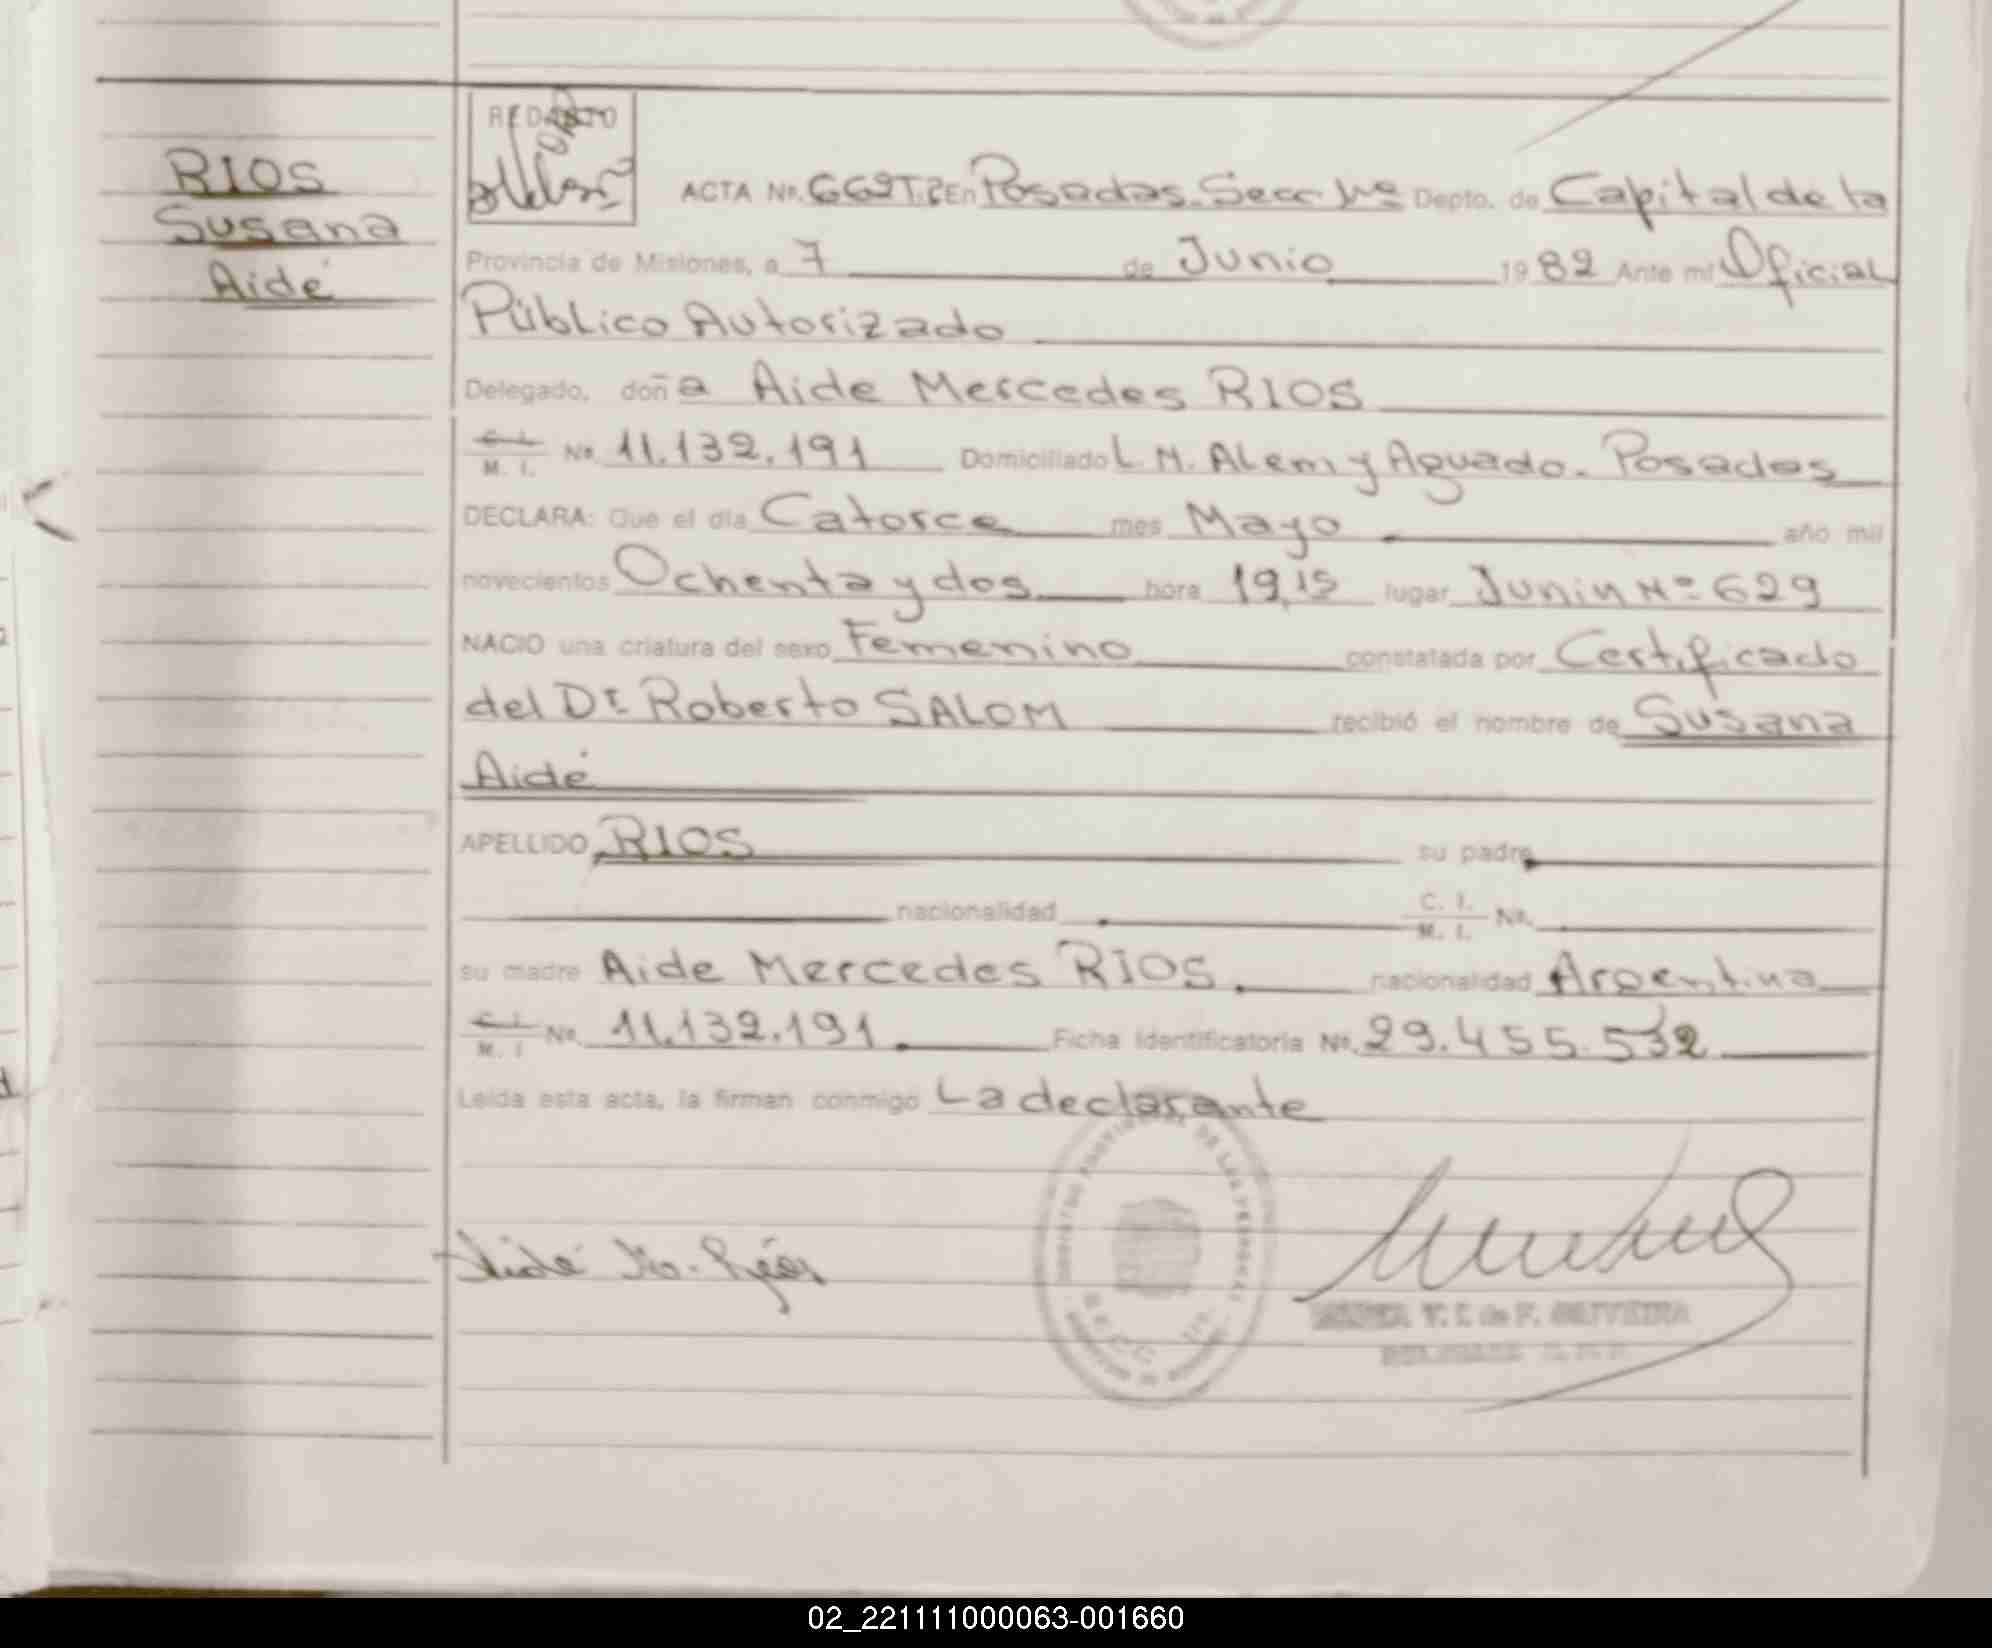 RIOS
Susana
Aidé
REDACTO
ACTA No. 669 T.2 En Posadas. Secc 1ra Depto. de Capital de la
Provincia de Misiones, a 7 de Junio 1982 Ante mi Oficial
Público Autorizado
Delegado, doña Aide Mercedes RIOS
C. I. M. I. No. 11.132.191 Domiciliado L. N. Alem y Aguado. Posadas
DECLARA: Que el día Catorce mes Mayo año mil
novecientos Ochenta y dos hora 19,15 lugar Junin Nº 629
NACIO una criatura del sexo Femenino constatada por Certificado
del Dr Roberto SALOM recibió el nombre de Susana
Aidé
APELLIDO RIOS su padre
nacionalidad C. I. M. I. No.
su madre Aide Mercedes RIOS. nacionalidad Argentina
C. I. M. I. No. 11.132.191. Ficha identificatoria No. 29.455.532
Leída esta acta, la firman conmigo La declarante
Aidé M. Ríos
DE LAS PERSONAS
T. I. de F. OLIVEIRA
02_221111000063-001660